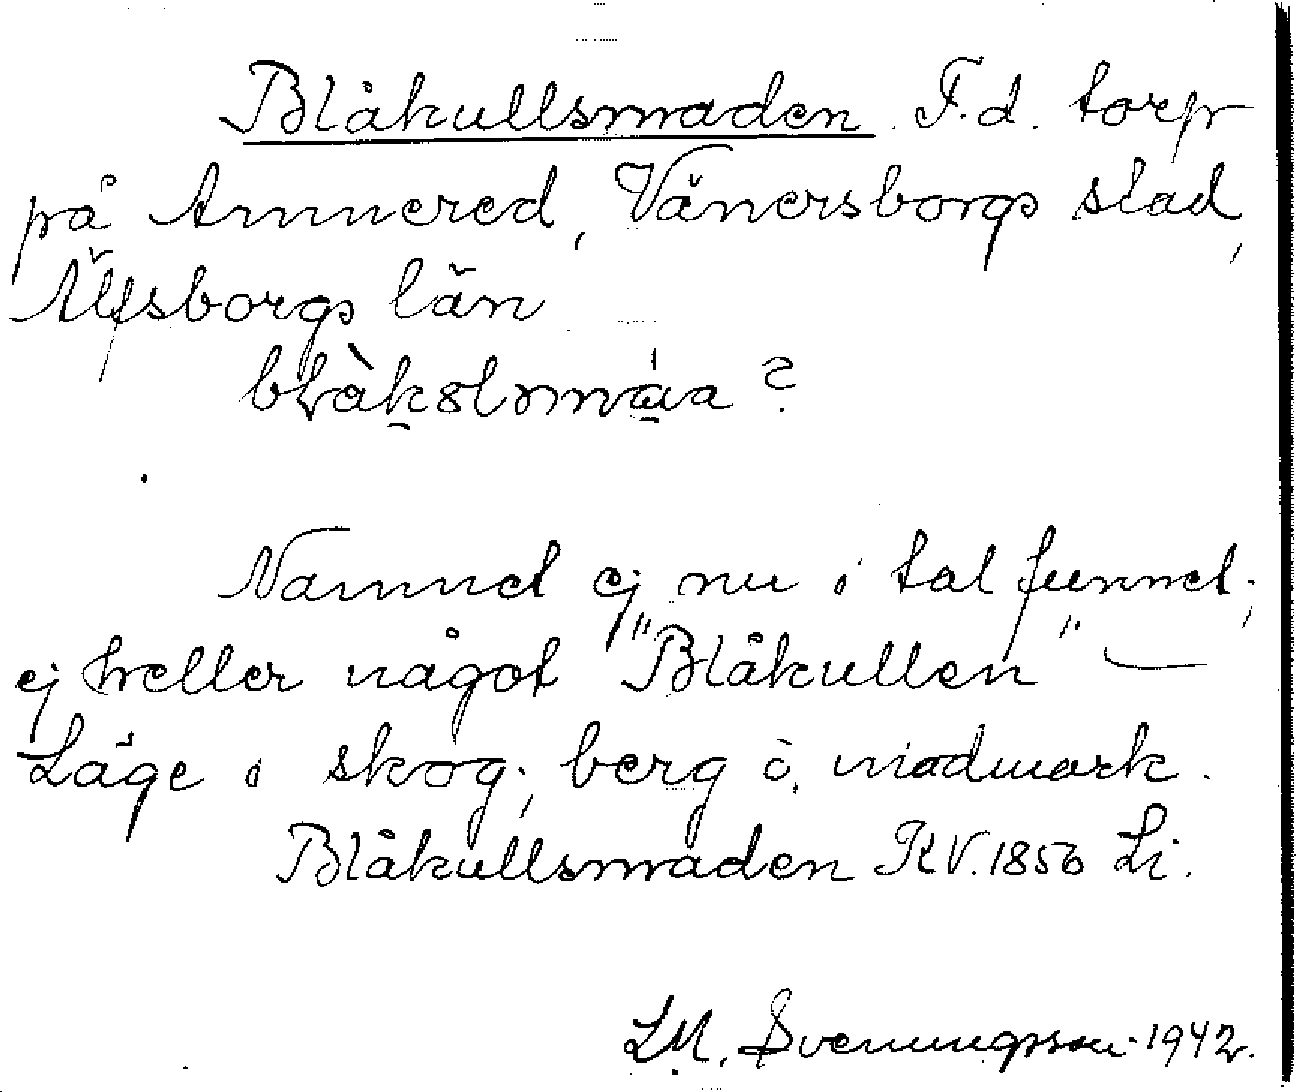 Blåkullsmaden. F.d. torp
på Annered, Vänersborgs stad,
Älfsborgs län
Namnet ej nu i tal funnet;
ej heller något "Blåkullen" —
Läge i skog; berg o. madmark.
Blåkullsmaden RV. 1856 Li.
LM. Svenungsson 1942.